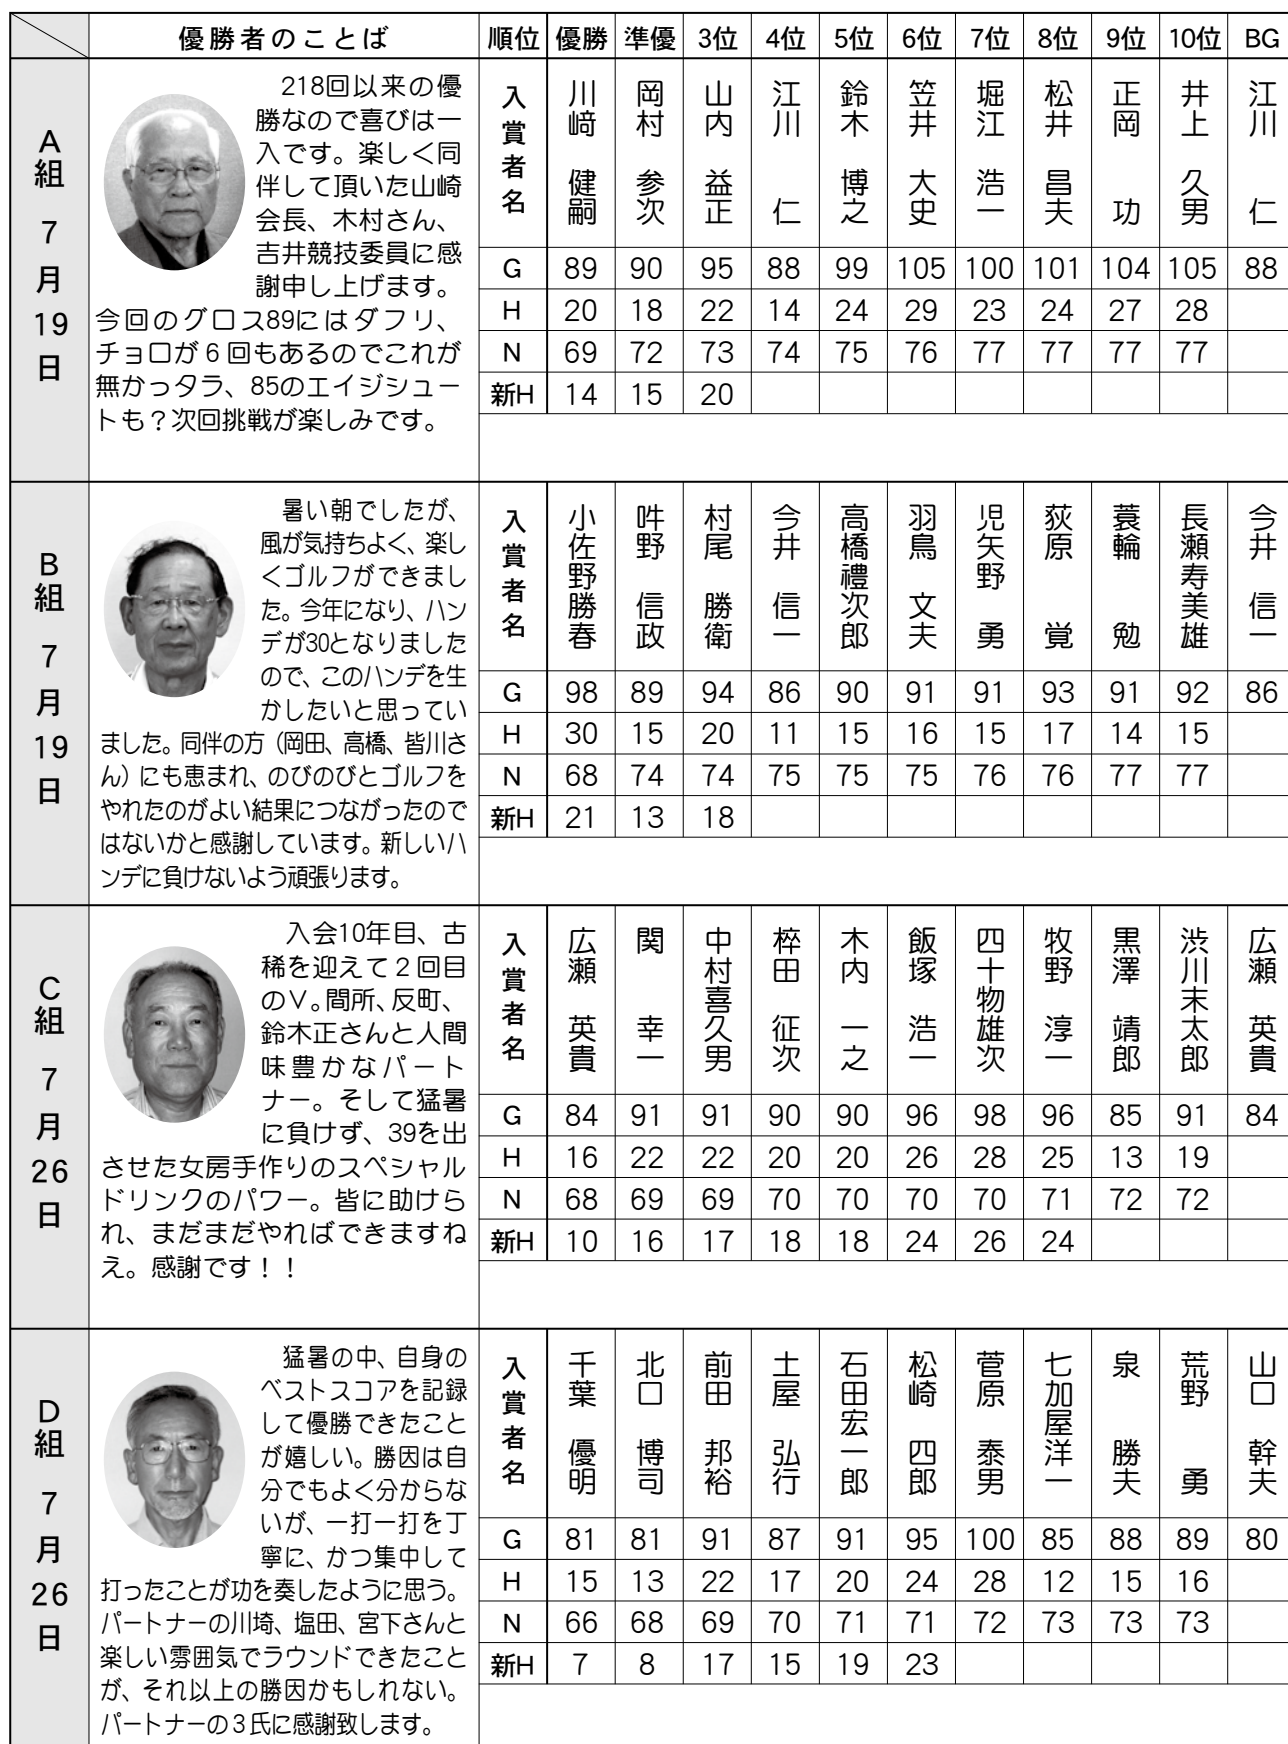 優勝者のことば 順位 優勝 準優 3位 4位 5位 6位 7位 8位 9位 10位 BG
A組 7月19日
218回以来の優
勝なので喜びは一
入です。楽しく同
伴して頂いた山崎
会長、木村さん、
吉井競技委員に感
謝申し上げます。
今回のグロス89にはダフリ、
チョロが6回もあるのでこれが
無かっタラ、85のエイジシュー
トも?次回挑戦が楽しみです。
入賞者名 川﨑健嗣 岡村参次 山内益正 江川仁 鈴木博之 笠井大史 堀江浩一 松井昌夫 正岡功 井上久男 江川仁
G 89 90 95 88 99 105 100 101 104 105 88
H 20 18 22 14 24 29 23 24 27 28
N 69 72 73 74 75 76 77 77 77 77
新H 14 15 20
B組 7月19日
暑い朝でしたが、
風が気持ちよく、楽し
くゴルフができまし
た。今年になり、ハン
デが30となりました
ので、このハンデを生
かしたいと思ってい
ました。同伴の方(岡田、高橋、皆川さ
ん)にも恵まれ、のびのびとゴルフを
やれたのがよい結果につながったので
はないかと感謝しています。新しいハ
ンデに負けないよう頑張ります。
入賞者名 小佐野勝春 吽野信政 村尾勝衛 今井信一 高橋禮次郎 羽鳥文夫 児矢野勇 荻原覚 蓑輪勉 長瀬寿美雄 今井信一
G 98 89 94 86 90 91 91 93 91 92 86
H 30 15 20 11 15 16 15 17 14 15
N 68 74 74 75 75 75 76 76 77 77
新H 21 13 18
C組 7月26日
入会10年目、古
稀を迎えて2回目
のV。間所、反町、
鈴木正さんと人間
味豊かなパート
ナー。そして猛暑
に負けず、39を出
させた女房手作りのスペシャル
ドリンクのパワー。皆に助けら
れ、まだまだやればできますね
え。感謝です!!
入賞者名 広瀬英貴 関幸一 中村喜久男 椊田征次 木内一之 飯塚浩一 四十物雄次 牧野淳一 黒澤靖郎 渋川末太郎 広瀬英貴
G 84 91 91 90 90 96 98 96 85 91 84
H 16 22 22 20 20 26 28 25 13 19
N 68 69 69 70 70 70 70 71 72 72
新H 10 16 17 18 18 24 26 24
D組 7月26日
猛暑の中、自身の
ベストスコアを記録
して優勝できたこと
が嬉しい。勝因は自
分でもよく分からな
いが、一打一打を丁
寧に、かつ集中して
打ったことが功を奏したように思う。
パートナーの川埼、塩田、宮下さんと
楽しい雰囲気でラウンドできたこと
が、それ以上の勝因かもしれない。
パートナーの3氏に感謝致します。
入賞者名 千葉優明 北口博司 前田邦裕 土屋弘行 石田宏一郎 松崎四郎 菅原泰男 七加屋洋一 泉勝夫 荒野勇 山口幹夫
G 81 81 91 87 91 95 100 85 88 89 80
H 15 13 22 17 20 24 28 12 15 16
N 66 68 69 70 71 71 72 73 73 73
新H 7 8 17 15 19 23